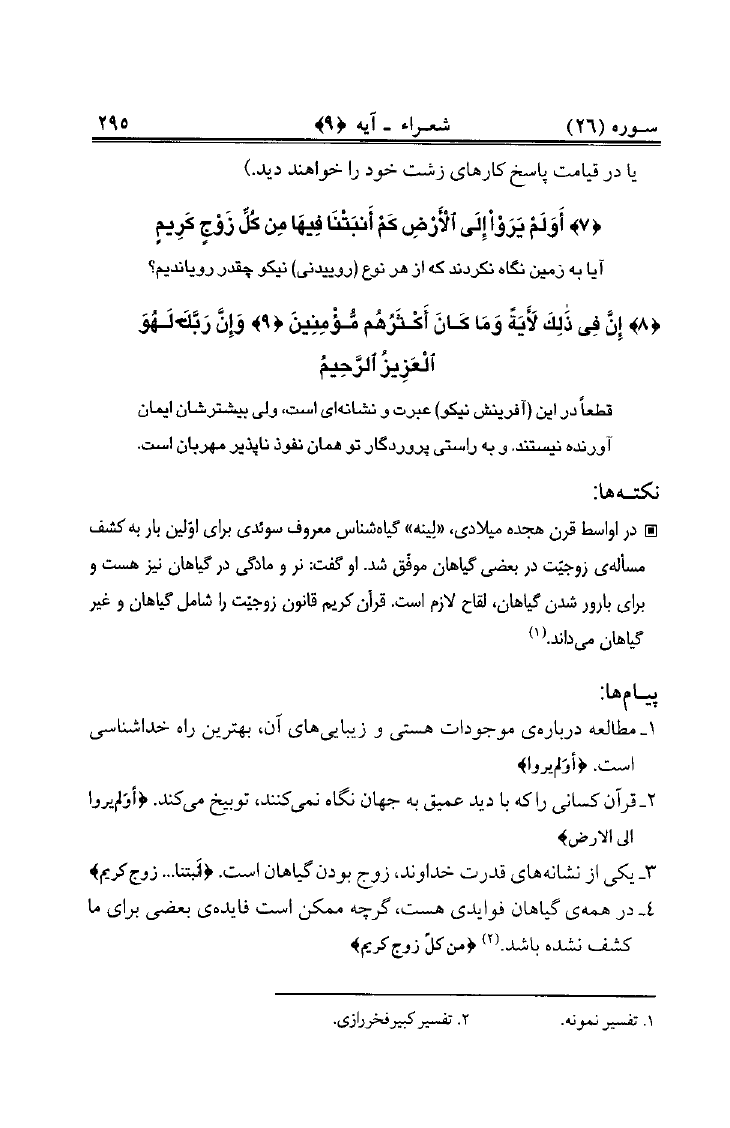 سوره (٢٦) شعراء ـ آیه ﴿٩﴾ ٢٩٥
یا در قیامت پاسخ کارهای زشت خود را خواهند دید.)
﴿٧﴾ أَوَلَمْ يَرَوْاْ إِلَى ٱلْأَرْضِ كَمْ أَنبَتْنَا فِيهَا مِن كُلِّ زَوْجٍ كَرِيمٍ
آیا به زمین نگاه نکردند که از هر نوع (روییدنی) نیکو چقدر رویاندیم؟
﴿٨﴾ إِنَّ فِى ذَٰلِكَ لَأَيَةً وَمَا كَانَ أَكْثَرُهُم مُّؤْمِنِينَ ﴿٩﴾ وَإِنَّ رَبَّكَ لَهُوَ
ٱلْعَزِيزُ ٱلرَّحِيمُ
قطعاً در این (آفرینش نیکو) عبرت و نشانه‌ای است، ولی بیشترشان ایمان
آورنده نیستند. و به راستی پروردگار تو همان نفوذ ناپذیر مهربان است.
نکته‌ها:
▣ در اواسط قرن هجده میلادی، «لِینه» گیاه‌شناس معروف سوئدی برای اوّلین بار به کشف
مسأله‌ی زوجیّت در بعضی گیاهان موفّق شد. او گفت: نر و مادگی در گیاهان نیز هست و
برای بارور شدن گیاهان، لقاح لازم است. قرآن کریم قانون زوجیّت را شامل گیاهان و غیر
گیاهان می‌داند.(١)
پیام‌ها:
١ـ مطالعه درباره‌ی موجودات هستی و زیبایی‌های آن، بهترین راه خداشناسی
است. ﴿أوَلم یروا﴾
٢ـ قرآن کسانی را که با دید عمیق به جهان نگاه نمی‌کنند، توبیخ می‌کند. ﴿أوَلم یروا
الی الارض﴾
٣ـ یکی از نشانه‌های قدرت خداوند، زوج بودن گیاهان است. ﴿أنبتنا... زوج کریم﴾
٤ـ در همه‌ی گیاهان فوایدی هست، گرچه ممکن است فایده‌ی بعضی برای ما
کشف نشده باشد.(٢) ﴿من کلّ زوج کریم﴾
١. تفسیر نمونه. ٢. تفسیر کبیر فخررازی.